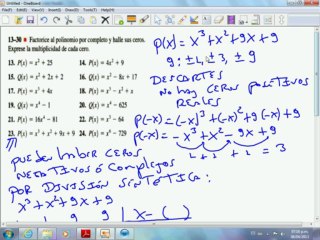 13-30 Factorice el polinomio por completo y halle sus ceros.
Exprese la multiplicidad de cada cero.
13. P(x) = x² + 25
14. P(x) = 4x² + 9
15. Q(x) = x² + 2x + 2
16. Q(x) = x² - 8x + 17
17. P(x) = x³ + 4x
18. P(x) = x³ - x² + x
19. Q(x) = x⁴ - 1
20. Q(x) = x⁴ - 625
21. P(x) = 16x⁴ - 81
22. P(x) = x³ - 64
23. P(x) = x³ + x² + 9x + 9
24. P(x) = x⁶ - 729
P(x) = x³ + x² + 9x + 9
9: ±1, ±3, ±9
DESCARTES
NO HAY CEROS POSITIVOS
REALES
P(-x) = (-x)³ + (-x)² + 9(-x) + 9
P(-x) = -x³ + x² - 9x + 9
1 + 1 + 1 = 3
PUEDEN HABER CEROS
NEGATIVOS Ó COMPLEJOS
POR DIVISIÓN SINTÉTICA:
x³ + x² + 9x + 9
1 9 9 | x - ( )